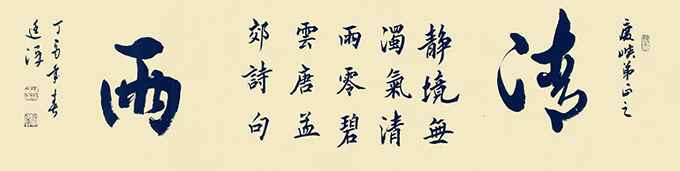 峡弟正之
清
静境無
濁氣清
雨零碧
雲唐孟
郊詩句
雨
丁酉年春